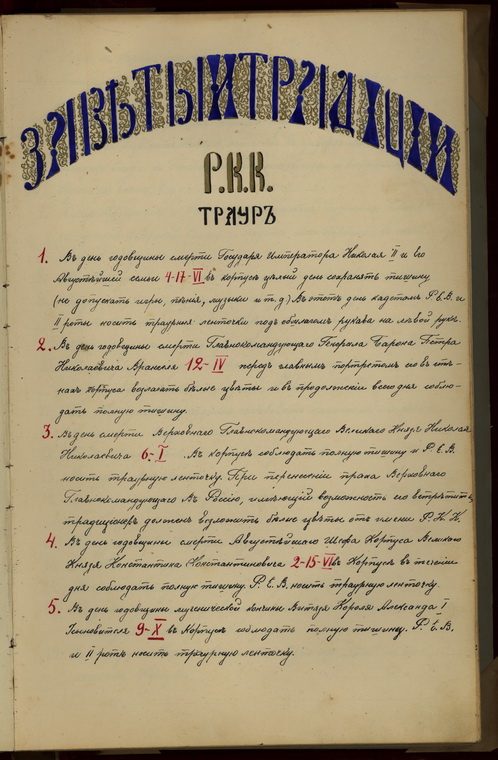 ЗАВѢТЫ И ТРАДИЦІИ
Р.К.К.
ТРАУРЪ
1. Въ день годовщины смерти Государя Императора Николая II и его
Августѣйшей семьи 4-17-VI въ корпусѣ цѣлый день сохранять тишину
(не допускать игры, пѣнія, музыки и т.д.) Въ этотъ день кадетамъ Р.Е.В. и
II роты носить траурныя ленточки подъ обшлагомъ рукава на лѣвой рукѣ.
2. Въ день годовщины смерти Главнокомандующаго Генерала Барона Петра
Николаевича Врангеля 12-IV передъ главнымъ портретомъ его въ стѣ-
нахъ корпуса возлагать бѣлые цвѣты и въ продолженіи всего дня соблю-
дать полную тишину.
3. Въ день смерти Верховнаго Главнокомандующаго Великаго Князя Николая
Николаевича 6-I . Въ корпусѣ соблюдать полную тишину и Р.Е.В.
носить траурную ленточку. При перенесеніи праха Верховнаго
Главнокомандующаго въ Россію, имѣющій возможность его встрѣтить,
традиціонеръ долженъ возложить бѣлые цвѣты отъ имени Р.К.К.
4. Въ день годовщины смерти Августѣйшаго Шефа Корпуса Великаго
Князя Константина Константиновича 2-15-VI въ Корпусѣ въ теченіи
дня соблюдать полную тишину. Р.Е.В. носить траурную ленточку.
5. Въ день годовщины мученической кончины Витязя Короля Александра I
9-X въ Корпусѣ соблюдать полную тишину. Р.Е.В.
и II ротѣ носить траурную ленточку.